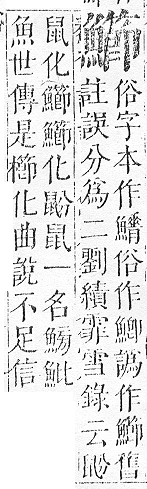 䲙
俗字本作鰿俗作鯽譌作䲙舊
註誤分爲二劉績霏雪錄云鼢
鼠化䲙䲙化鼢鼠一名鰟魮
魚世傳是櫛化曲說不足信